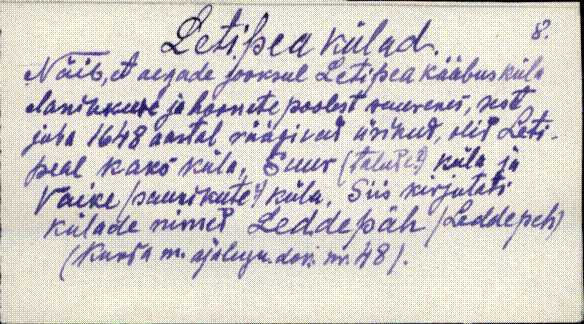 Letipea külad.
8.
Näib, et aegade jooksul Letipea kääbusküla
elanikkude ja hoonete poolest suurenes, sest
juba 1648 aastal räägivad ürikud, olid Leti-
peal kaks küla, Suur (talude?) küla ja
Väike (saunikute?) küla. Siis kirjutati
külade nimed Leddepäh (Leddepeh)
(Kunda m. ajalugu. dok. nr. 48).